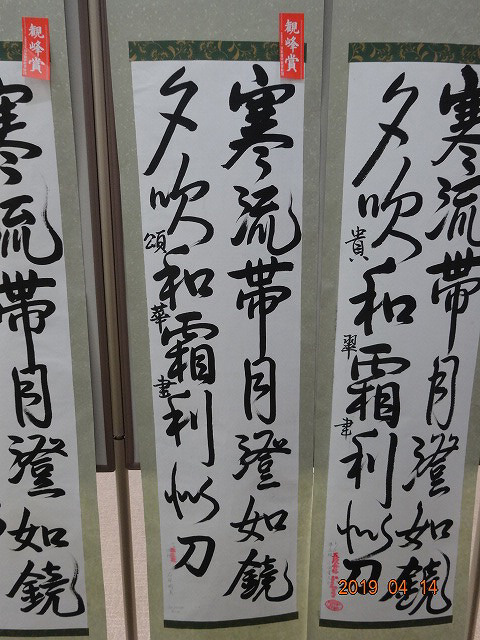 観峰賞
寒流帯月澄如鏡
夕吹和霜利似刀
頌華書
観峰賞
寒流帯月澄如鏡
夕吹和霜利似刀
貴翠書
寒流帯月澄如鏡
2019 04 14